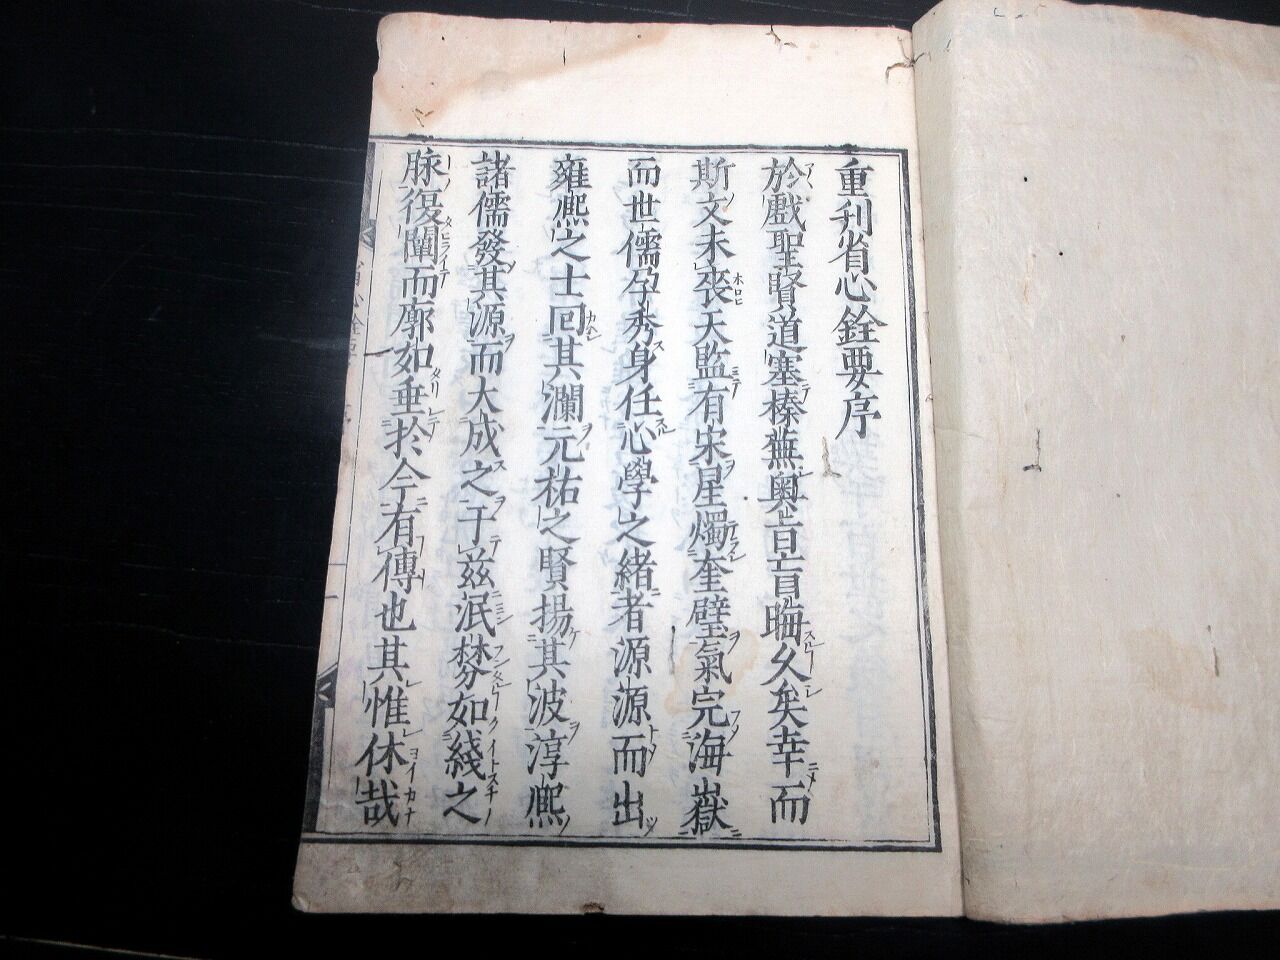 重刊省心銓要序
於戲聖賢道塞榛蕪奧旨盲晦久矣幸而
斯文未喪天監有宋星燭奎壁氣完海嶽
而世儒孕秀身任心學之緒者源源而出
雍熈之士回其瀾元祐之賢揚其波淳熈
諸儒發其源而大成之于茲泯棼如綫之
脉復闡而廓如垂於今有傳也其惟休哉